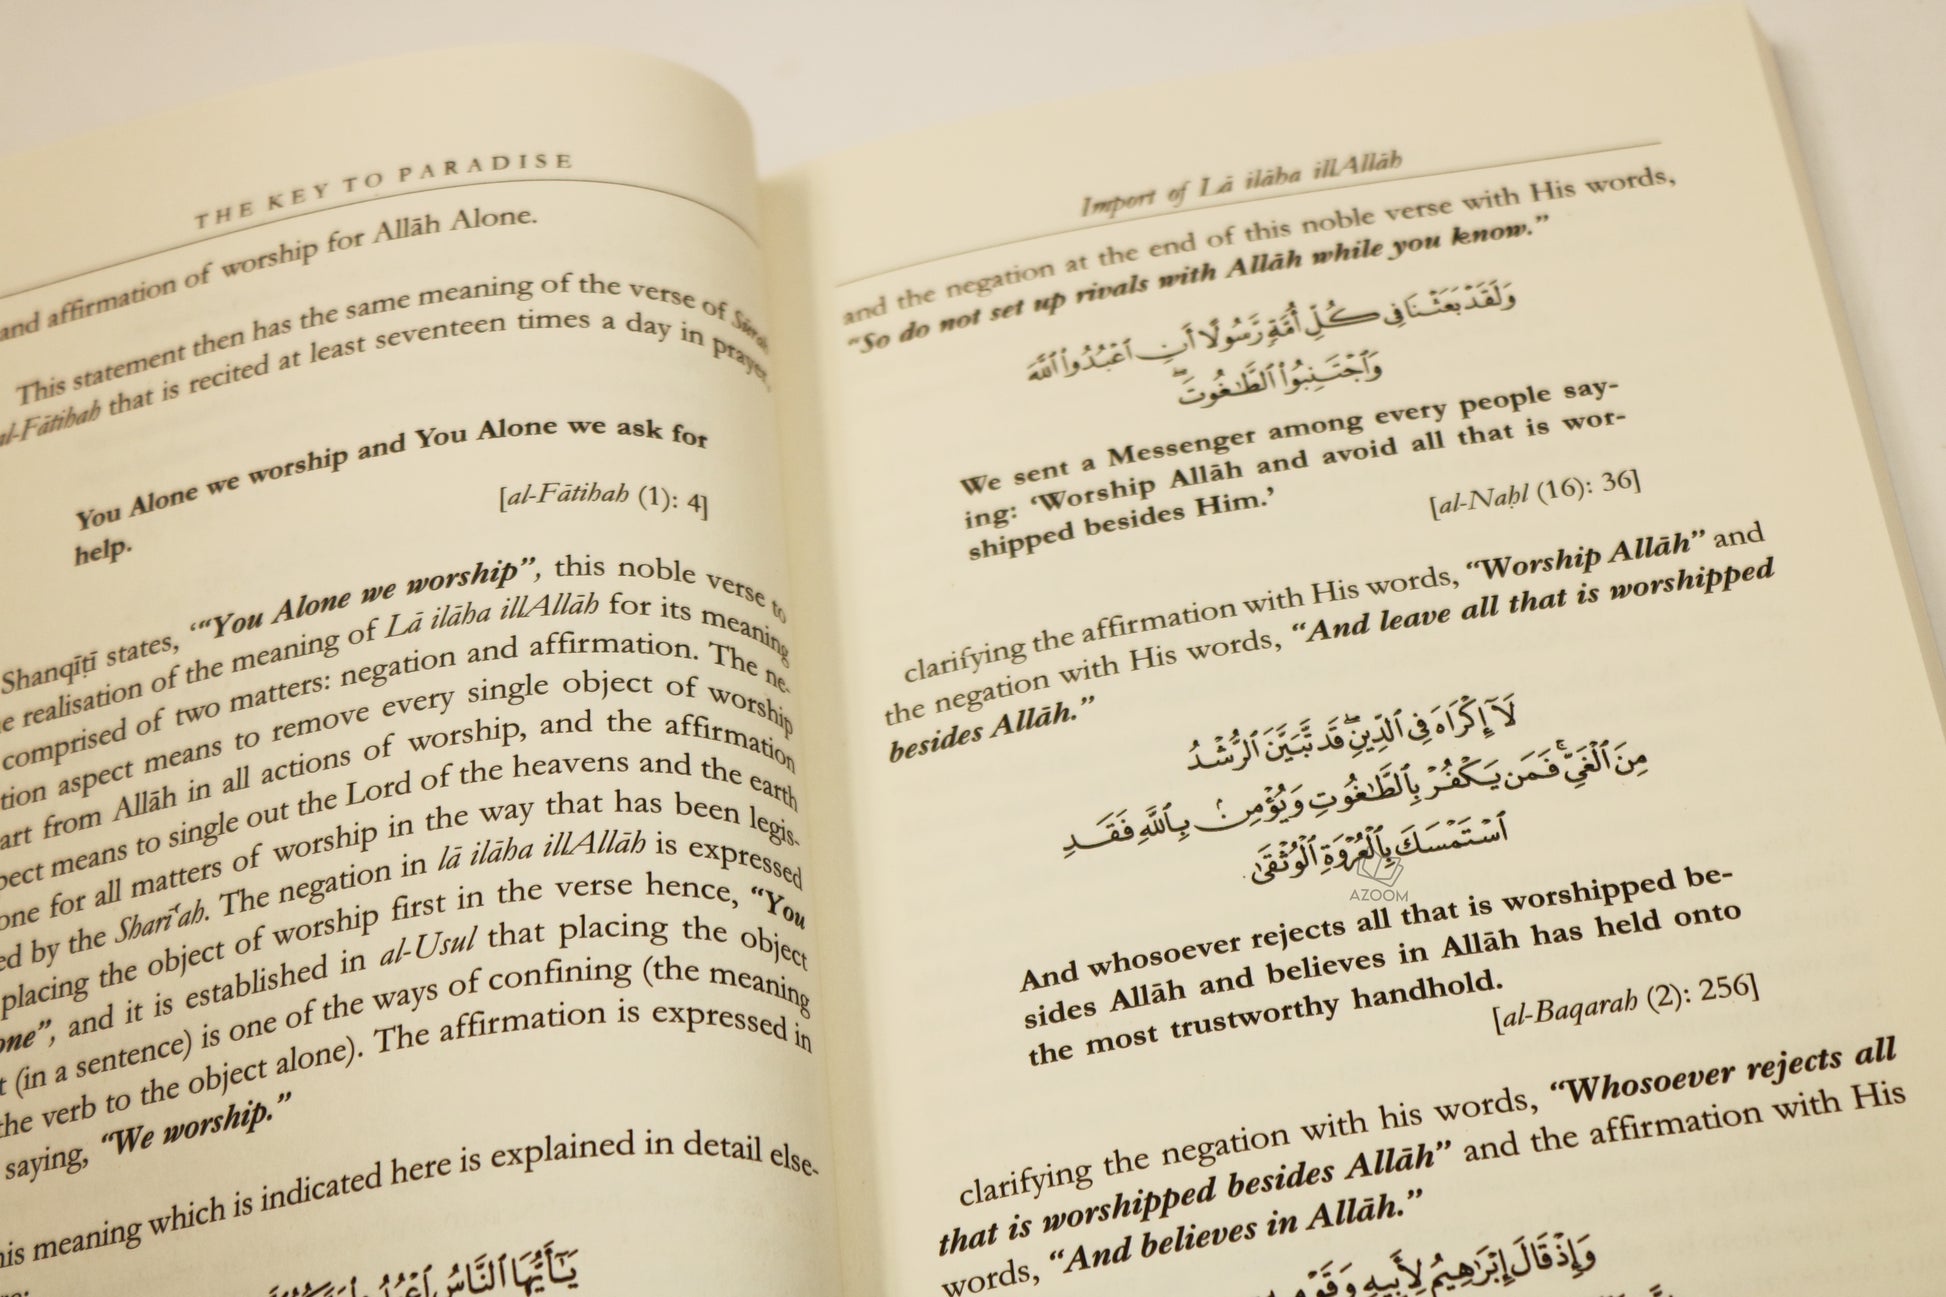 THE KEY TO PARADISE
and affirmation of worship for Allāh Alone.
This statement then has the same meaning of the verse of Sūrah
al-Fātihah that is recited at least seventeen times a day in prayer,
You Alone we worship and You Alone we ask for
help.
[al-Fātihah (1): 4]
Shanqīṭī states, ‘“You Alone we worship”, this noble verse to
realisation of the meaning of Lā ilāha illAllāh for its meaning
comprised of two matters: negation and affirmation. The ne-
tion aspect means to remove every single object of worship
art from Allāh in all actions of worship, and the affirmation
pect means to single out the Lord of the heavens and the earth
one for all matters of worship in the way that has been legis-
ed by the Sharīʿah. The negation in lā ilāha illAllāh is expressed
placing the object of worship first in the verse hence, “You
one”, and it is established in al-Usul that placing the object
t (in a sentence) is one of the ways of confining (the meaning
the verb to the object alone). The affirmation is expressed in
saying, “We worship.”
his meaning which is indicated here is explained in detail else-
يَـٰٓأَيُّهَا ٱلنَّاسُ ٱعْبُدُوا۟
Import of Lā ilāha illAllāh
and the negation at the end of this noble verse with His words,
“So do not set up rivals with Allāh while you know.”
وَلَقَدْ بَعَثْنَا فِى كُلِّ أُمَّةٍ رَّسُولًا أَنِ ٱعْبُدُوا۟ ٱللَّهَ
وَٱجْتَنِبُوا۟ ٱلطَّـٰغُوتَ ۖ
We sent a Messenger among every people say-
ing: ‘Worship Allāh and avoid all that is wor-
shipped besides Him.’
[al-Naḥl (16): 36]
clarifying the affirmation with His words, “Worship Allāh” and
the negation with His words, “And leave all that is worshipped
besides Allāh.”
لَآ إِكْرَاهَ فِى ٱلدِّينِ ۖ قَد تَّبَيَّنَ ٱلرُّشْدُ
مِنَ ٱلْغَىِّ ۚ فَمَن يَكْفُرْ بِٱلطَّـٰغُوتِ وَيُؤْمِنۢ بِٱللَّهِ فَقَدِ
ٱسْتَمْسَكَ بِٱلْعُرْوَةِ ٱلْوُثْقَىٰ
AZOOM
And whosoever rejects all that is worshipped be-
sides Allāh and believes in Allāh has held onto
the most trustworthy handhold.
[al-Baqarah (2): 256]
clarifying the negation with his words, “Whosoever rejects all
that is worshipped besides Allāh” and the affirmation with His
words, “And believes in Allāh.”
وَإِذْ قَالَ إِبْرَٰهِيمُ لِأَبِيهِ